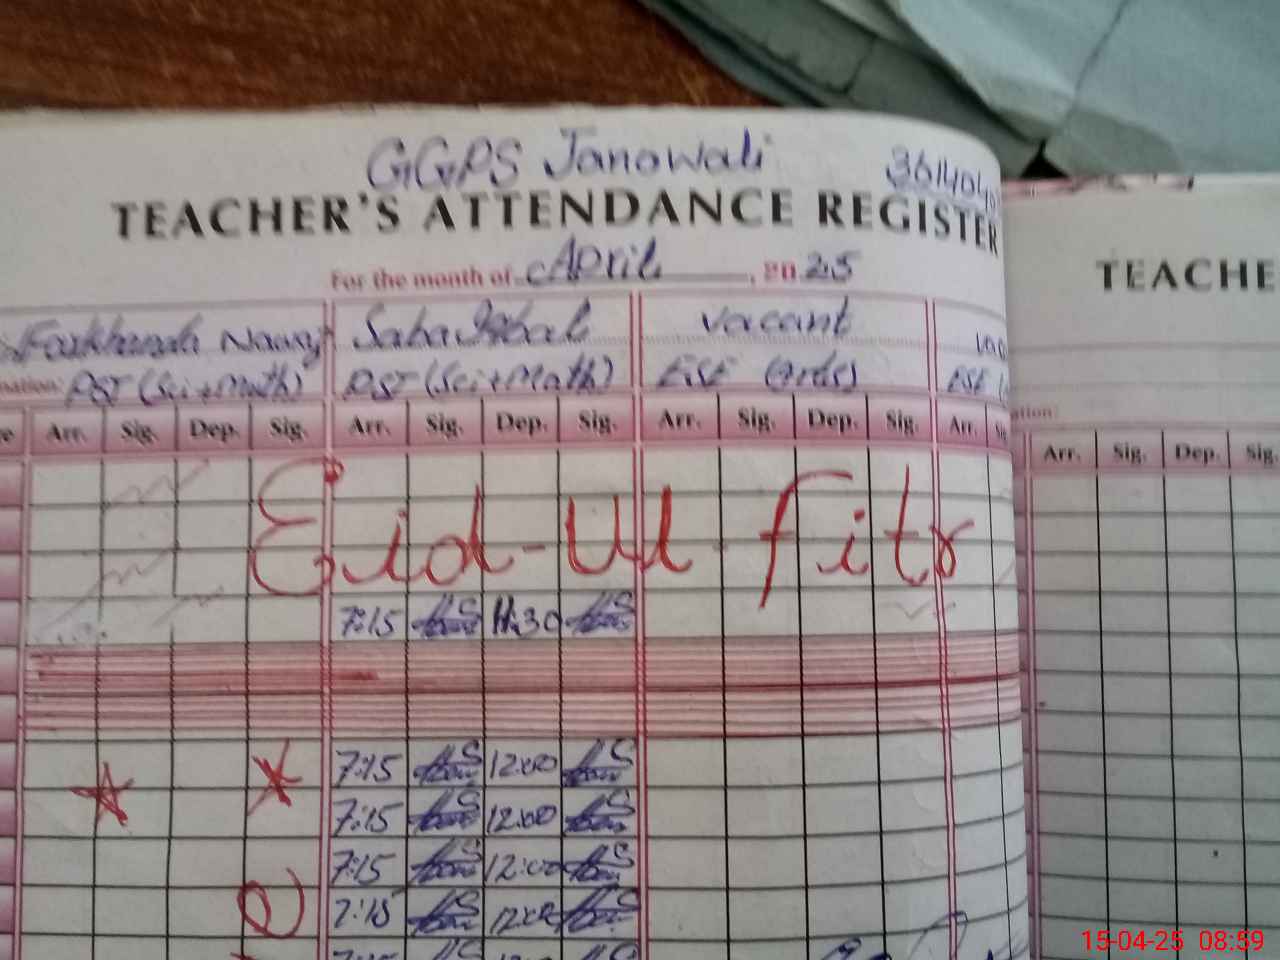 GGPS Janowali 3614040
TEACHER'S ATTENDANCE REGISTER
For the month of April, 2025
TEACHE
Farkhanda Nawaz Saba Iqbal Vacant
nation: PST (Sci+Math) PST (Sci+Math) ESE (Arts) ESE
ation:
Arr. Sig. Dep. Sig. Arr. Sig. Dep. Sig. Arr. Sig. Dep. Sig. Arr.
Arr. Sig. Dep. Sig.
Eid-ul-fitr
7:15 11:30
7:15 12:00
7:15 12:00
7:15 12:00
7:15 12:00
15-04-25 08:59